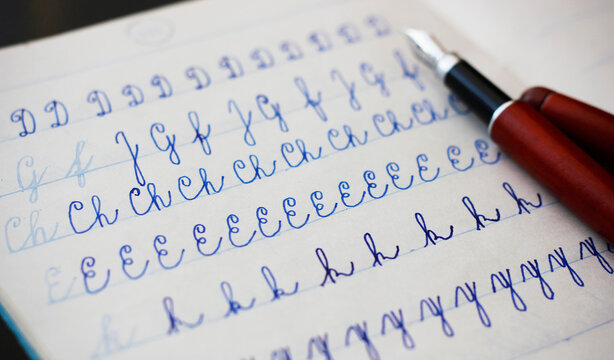 D D D D D D D D D D D D
G f J G f J G f J G f
Ch Ch Ch Ch Ch Ch Ch Ch Ch Ch
E E E E E E E E E E E E E E E
k k k k k k k k k
y y y y y y y y y y